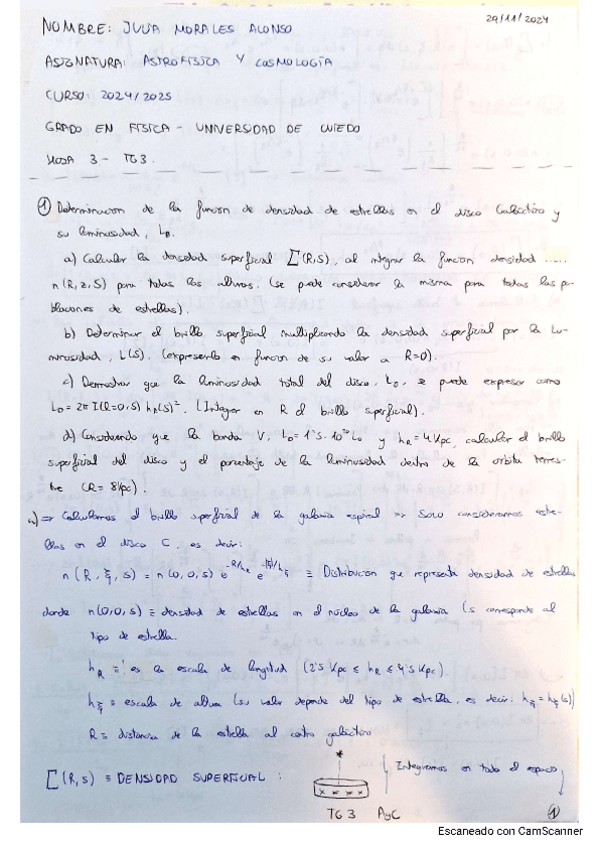 29/11/2024
NOMBRE: JULIA MORALES ALONSO
ASIGNATURA: ASTROFISICA Y COSMOLOGÍA
CURSO: 2024/2025
GRADO EN FISICA - UNIVERSIDAD DE OVIEDO
HOJA 3 - TG3.
① Determinacion de la funcion de densidad de estrellas en el disco Galáctico y
su luminosidad, L_D.
a) Calcular la densidad superficial Σ(R,S), al integrar la funcion densidad .....
n(R,z,S) para todas las alturas. (se puede considerar la misma para todas las po-
blaciones de estrellas).
b) Determinar el brillo superficial multiplicando la densidad superficial por la Lu-
minosidad, L(S). (expresarlo en funcion de su valor a R=0).
c) Demostrar que la luminosidad total del disco, L_D, se puede expresar como
L_D = 2π I(R=0,S) h_R(S)². (Integrar en R el brillo superficial).
d) Considerando que la banda V, L_D = 1'5·10¹⁰ L_⊙ y h_R = 4 Kpc, calcular el brillo
superficial del disco y el porcentaje de la luminosidad dentro de la orbita terres-
tre (R = 8 Kpc).
⇒ Calculamos el brillo superficial de la galaxia espiral ⇒ Solo consideramos estre-
llas en el disco C, es decir:
n(R, ξ, S) = n(0,0,S) e^{-R/h_R} e^{-|ξ|/h_ξ} ≡ Distribucion que representa densidad de estrellas
donde n(0,0,S) ≡ densidad de estrellas en el núcleo de la galaxia (S corresponde al
tipo de estrella.
h_R ≡ es la escala de longitud (2'5 Kpc ≤ h_R ≤ 4'5 Kpc)
h_ξ ≡ escala de altura (su valor depende del tipo de estrella, es decir: h_ξ = h_ξ(S))
R ≡ distancia de la estrella al centro galáctico
Σ(R,S) ≡ DENSIDAD SUPERFICIAL :
Integramos en todo el espacio
TG 3 AyC
①
Escaneado con CamScanner